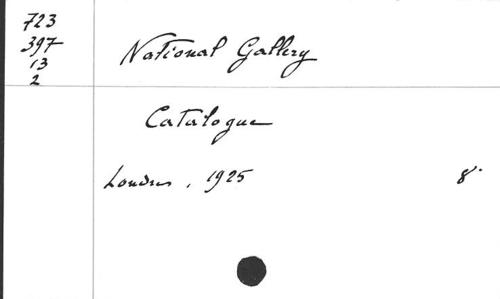 723
397
13
2
National Gallery
Catalogue
Londres, 1925 8°